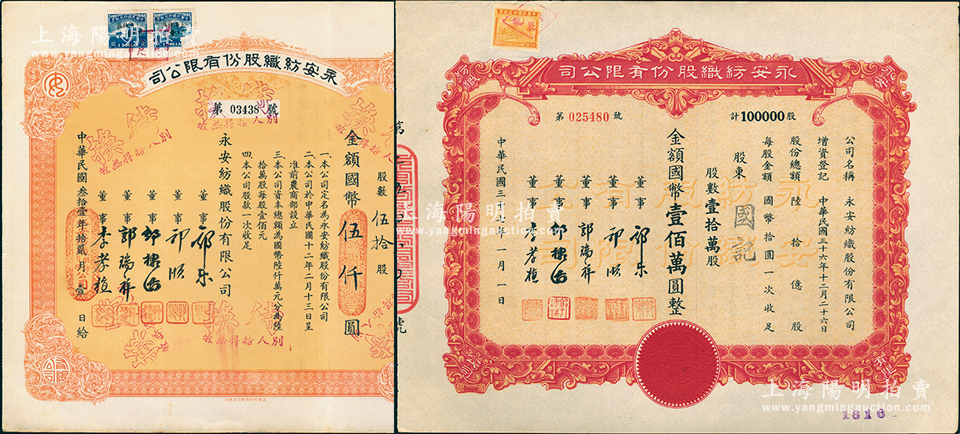 永安紡織股份有限公司
第 03438 號
一本公司定名為永安紡織股份有限公司
二本公司於中華民國十二年二月十三日呈
准前農商部設立
三本公司資本總額為國幣陸仟萬元分為陸
拾萬股每股壹佰元
四本公司股款一次收足
股數 伍拾 股
金額國幣 伍仟 圓
永安紡織股份有限公司
董事
董事
董事 郭棣活
董事 郭瑞祥
董事 李孝植
中華民國叁拾壹年拾貳月 壹 日給
永安紡織股份有限公司
第 025480 號
計 100000 股
公司名稱 永安紡織股份有限公司
增資登記 中華民國三十六年十二月二十六日
股份總額 陸拾億股
每股金額 國幣拾圓一次收足
股東 國記
股數壹拾萬股
金額國幣壹佰萬圓整
董事
董事
董事 郭瑞祥
董事 郭棣活
董事 李孝植
1616
上海陽明拍賣
www.yangmingauction.com